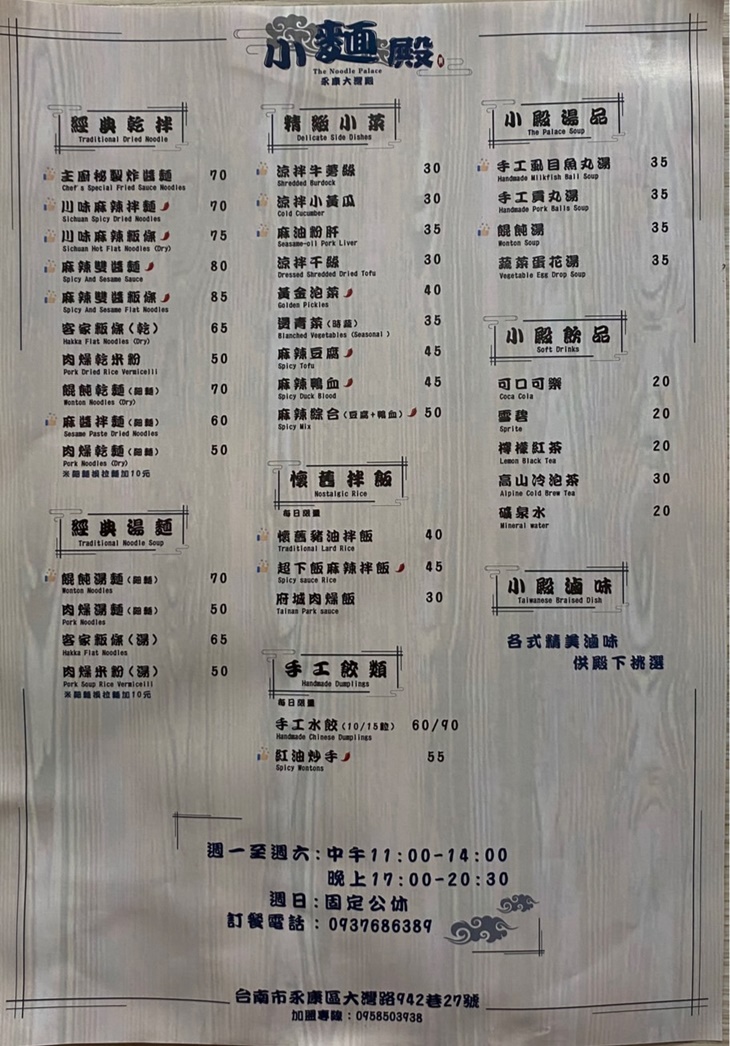 小麵殿
The Noodle Palace
永康大灣殿
經典乾拌
Traditional Dried Noodle
主廚秘製炸醬麵 70
Chef's Special Fried Sauce Noodles
川味麻辣拌麵 70
Sichuan Spicy Dried Noodles
川味麻辣粄條 75
Sichuan Hot Flat Noodles (Dry)
麻辣雙醬麵 80
Spicy And Sesame Sauce
麻辣雙醬粄條 85
Spicy And Sesame Flat Noodles
客家粄條(乾) 65
Hakka Flat Noodles (Dry)
肉燥乾米粉 50
Pork Dried Rice Vermicelli
餛飩乾麵(細麵) 70
Wonton Noodles (Dry)
麻醬拌麵(細麵) 60
Sesame Paste Dried Noodles
肉燥乾麵(細麵) 50
Pork Noodles (Dry)
※細麵換拉麵加10元
經典湯麵
Traditional Noodle Soup
餛飩湯麵(細麵) 70
Wonton Noodles
肉燥湯麵(細麵) 50
Pork Noodles
客家粄條(湯) 65
Hakka Flat Noodles
肉燥米粉(湯) 50
Pork Soup Rice Vermicelli
※細麵換拉麵加10元
精緻小菜
Delicate Side Dishes
涼拌牛蒡絲 30
Shredded Burdock
涼拌小黃瓜 30
Cold Cucumber
麻油粉肝 35
Seasame-oil Pork Liver
涼拌干絲 30
Dressed Shredded Dried Tofu
黃金泡菜 40
Golden Pickles
燙青菜(時蔬) 35
Blanched Vegetables (Seasonal)
麻辣豆腐 45
Spicy Tofu
麻辣鴨血 45
Spicy Duck Blood
麻辣綜合(豆腐+鴨血) 50
Spicy Mix
懷舊拌飯
Nostalgic Rice
每日限量
懷舊豬油拌飯 40
Traditional Lard Rice
超下飯麻辣拌飯 45
Spicy sauce Rice
府城肉燥飯 30
Tainan Park sauce
手工餃類
Handmade Dumplings
每日限量
手工水餃(10/15粒) 60/90
Handmade Chinese Dumplings
紅油炒手 55
Spicy Wontons
小殿湯品
The Palace Soup
手工虱目魚丸湯 35
Handmade Milkfish Ball Soup
手工貢丸湯 35
Handmade Pork Balls Soup
餛飩湯 35
Wonton Soup
蔬菜蛋花湯 35
Vegetable Egg Drop Soup
小殿飲品
Soft Drinks
可口可樂 20
Coca Cola
雪碧 20
Sprite
檸檬紅茶 20
Lemon Black Tea
高山冷泡茶 30
Alpine Cold Brew Tea
礦泉水 20
Mineral water
小殿滷味
Taiwanese Braised Dish
各式精美滷味
供殿下挑選
週一至週六:中午11:00-14:00
晚上17:00-20:30
週日:固定公休
訂餐電話:0937686389
台南市永康區大灣路942巷27號
加盟專線:0958503938